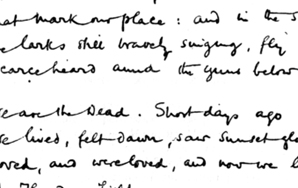 at mark our place : and in the s
larks still bravely singing, fly
carce heard amid the guns below
e are the Dead. Short days ago
e lived, felt dawn, saw sunset glo
oved, and were loved, and now we l